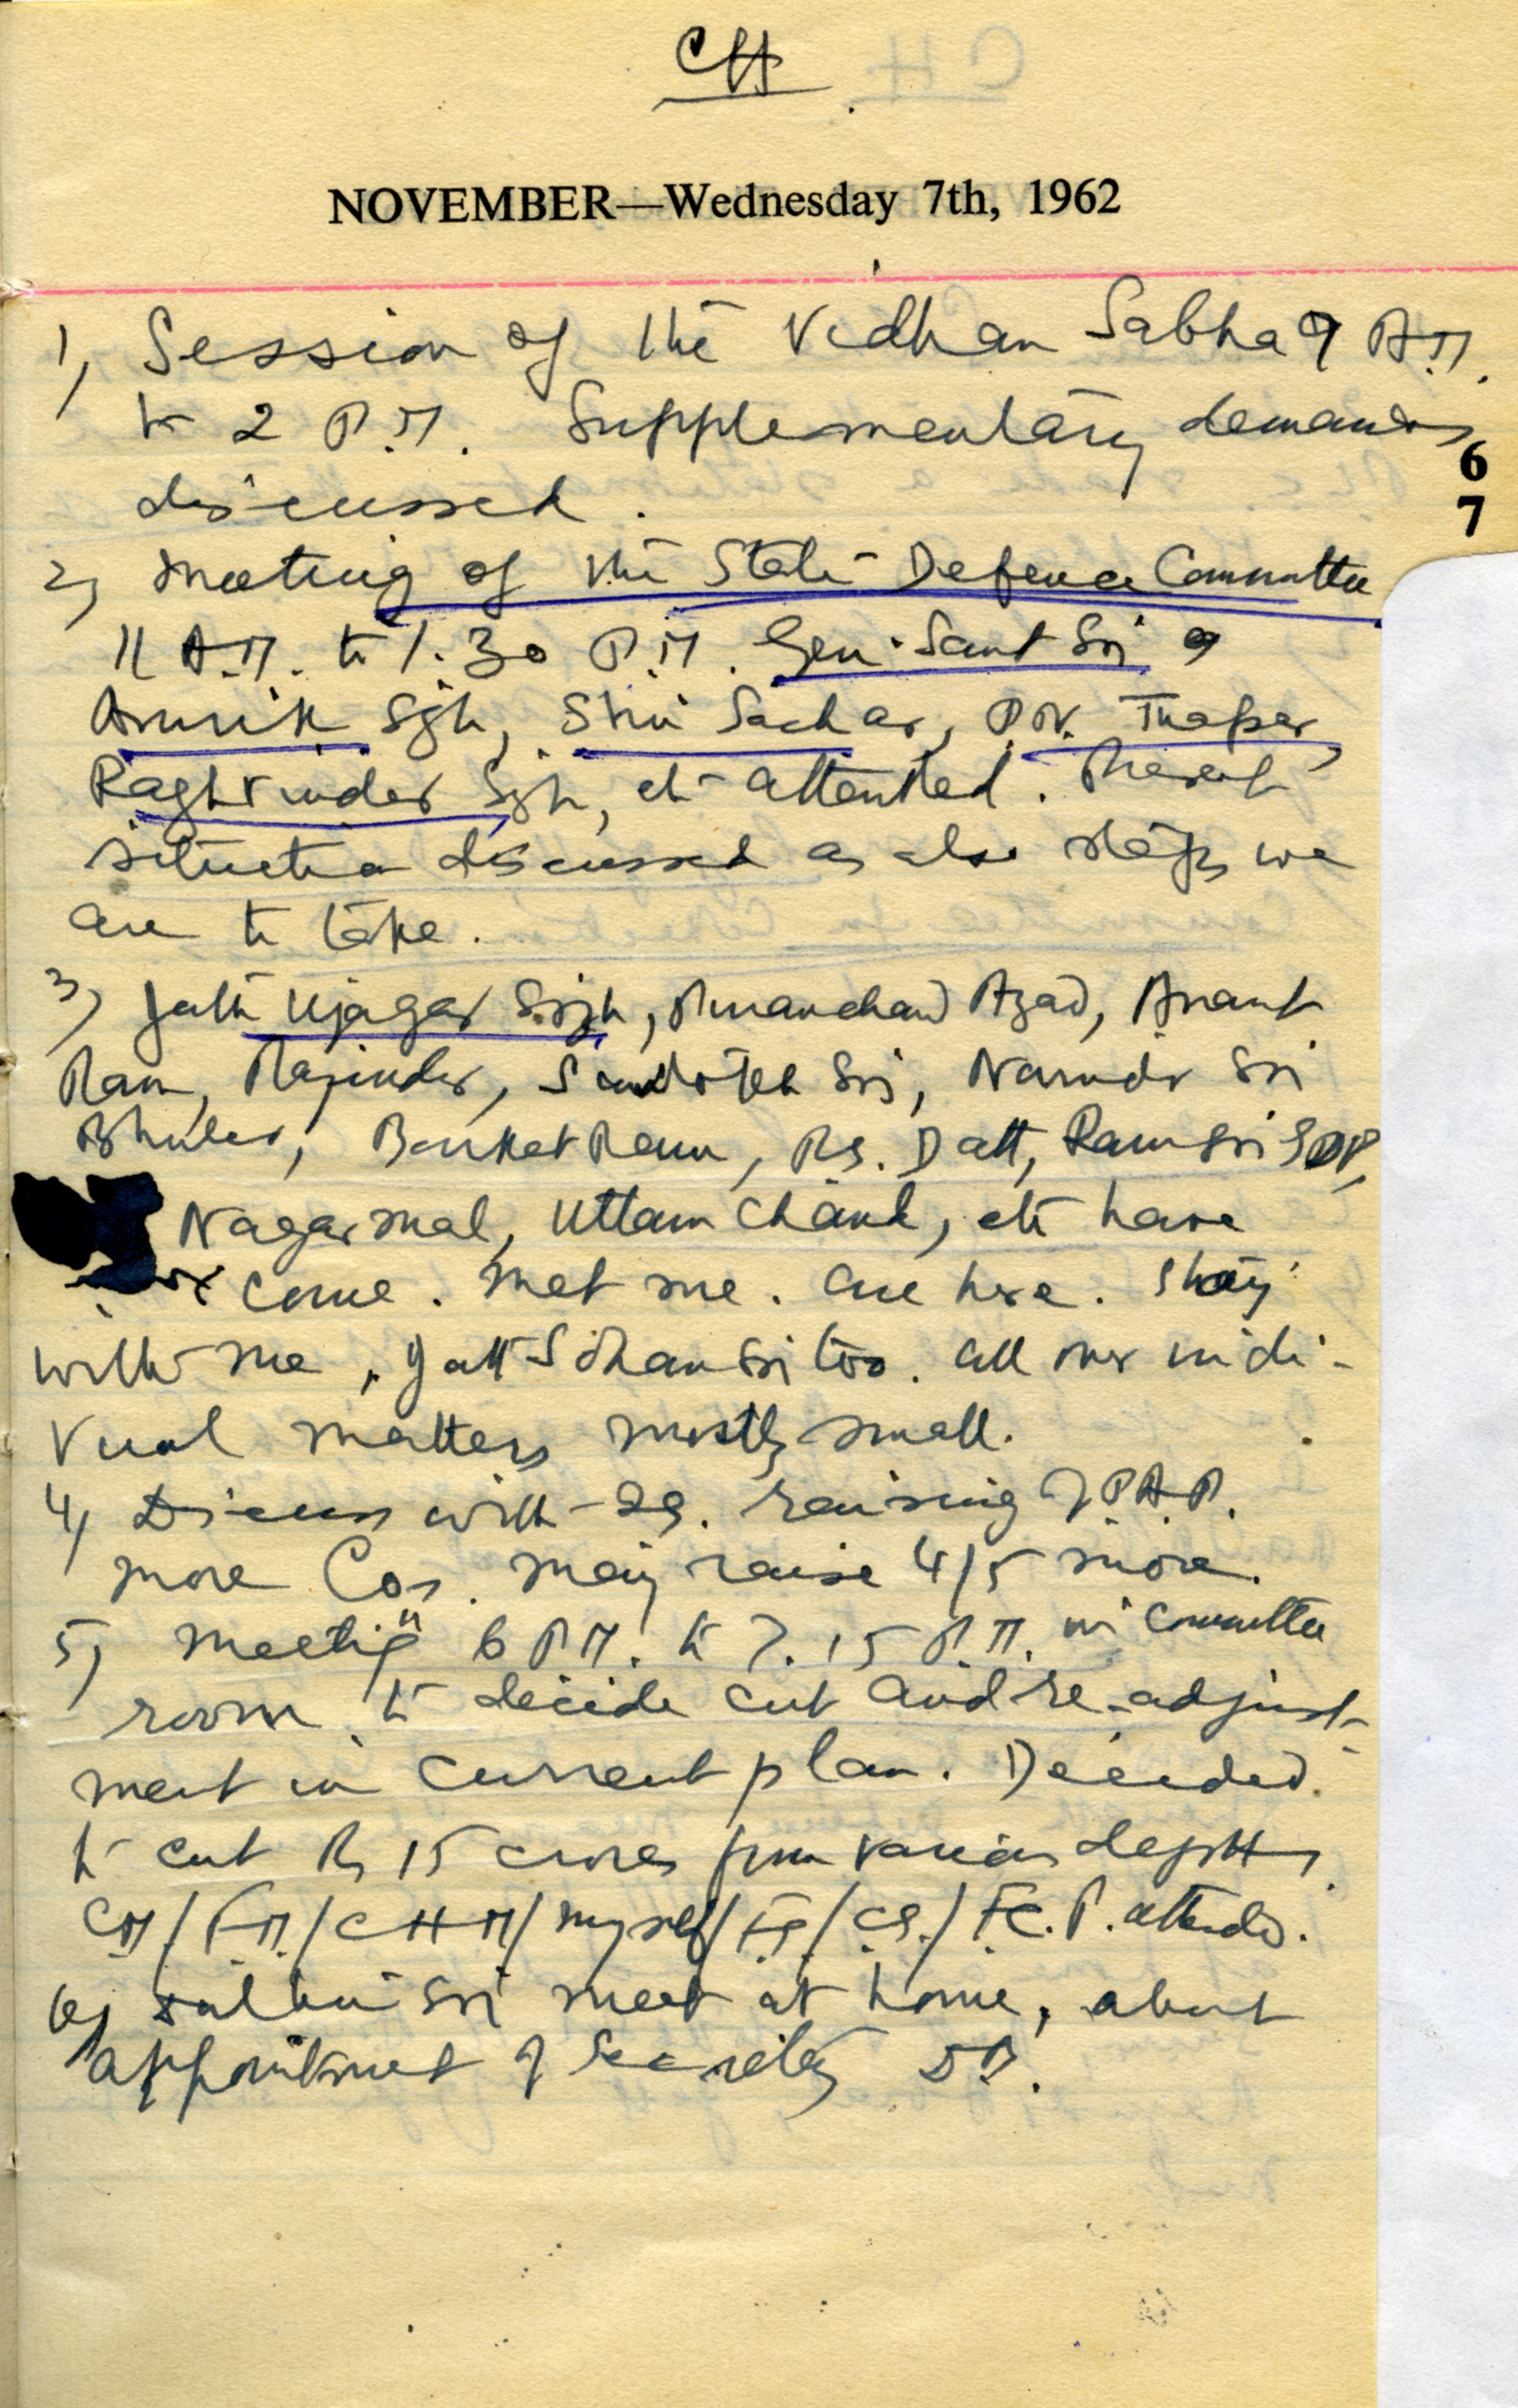 CH
NOVEMBER—Wednesday 7th, 1962
1, Session of the Vidhan Sabha 9 A.M.
to 2 P.M. Supplementary demands
6
7
discussed.
2, Meeting of the State Defence Committee
11 A.M. to 1.30 P.M. Gen. Sant Sri
Amrik Sgh, Shri Sachar, P.N. Thaper,
Raghvinder Sgh, etc attended. Present
situation discussed as also steps we
are to take.
3, Jath Ujagar Singh, Azad, Anant
Ram, Rajinder, Santokh Sri, Narindr Sri
Bhuler, Banket Ram, P.S. Datt, Ram Sri
Nagar Mal, Uttam Chand, etc have
come. Met me. Are here. Stay
with me, Jatt Sohan Sri too. All over indi-
vual matters mostly small.
4, Discuss with IG. raising of P.A.P.
more Cos. May raise 4/5 more.
5, Meeting 6 P.M. to 7.15 P.M. in Committee
room to decide cut and re-adjust-
ment in current plan. Decided
to cut Rs 15 crores from various deptts.
CM/FM/CHM/myself/FS/CS./FC.P. attended.
6, Sri meet at home, about
appointment of Secretary